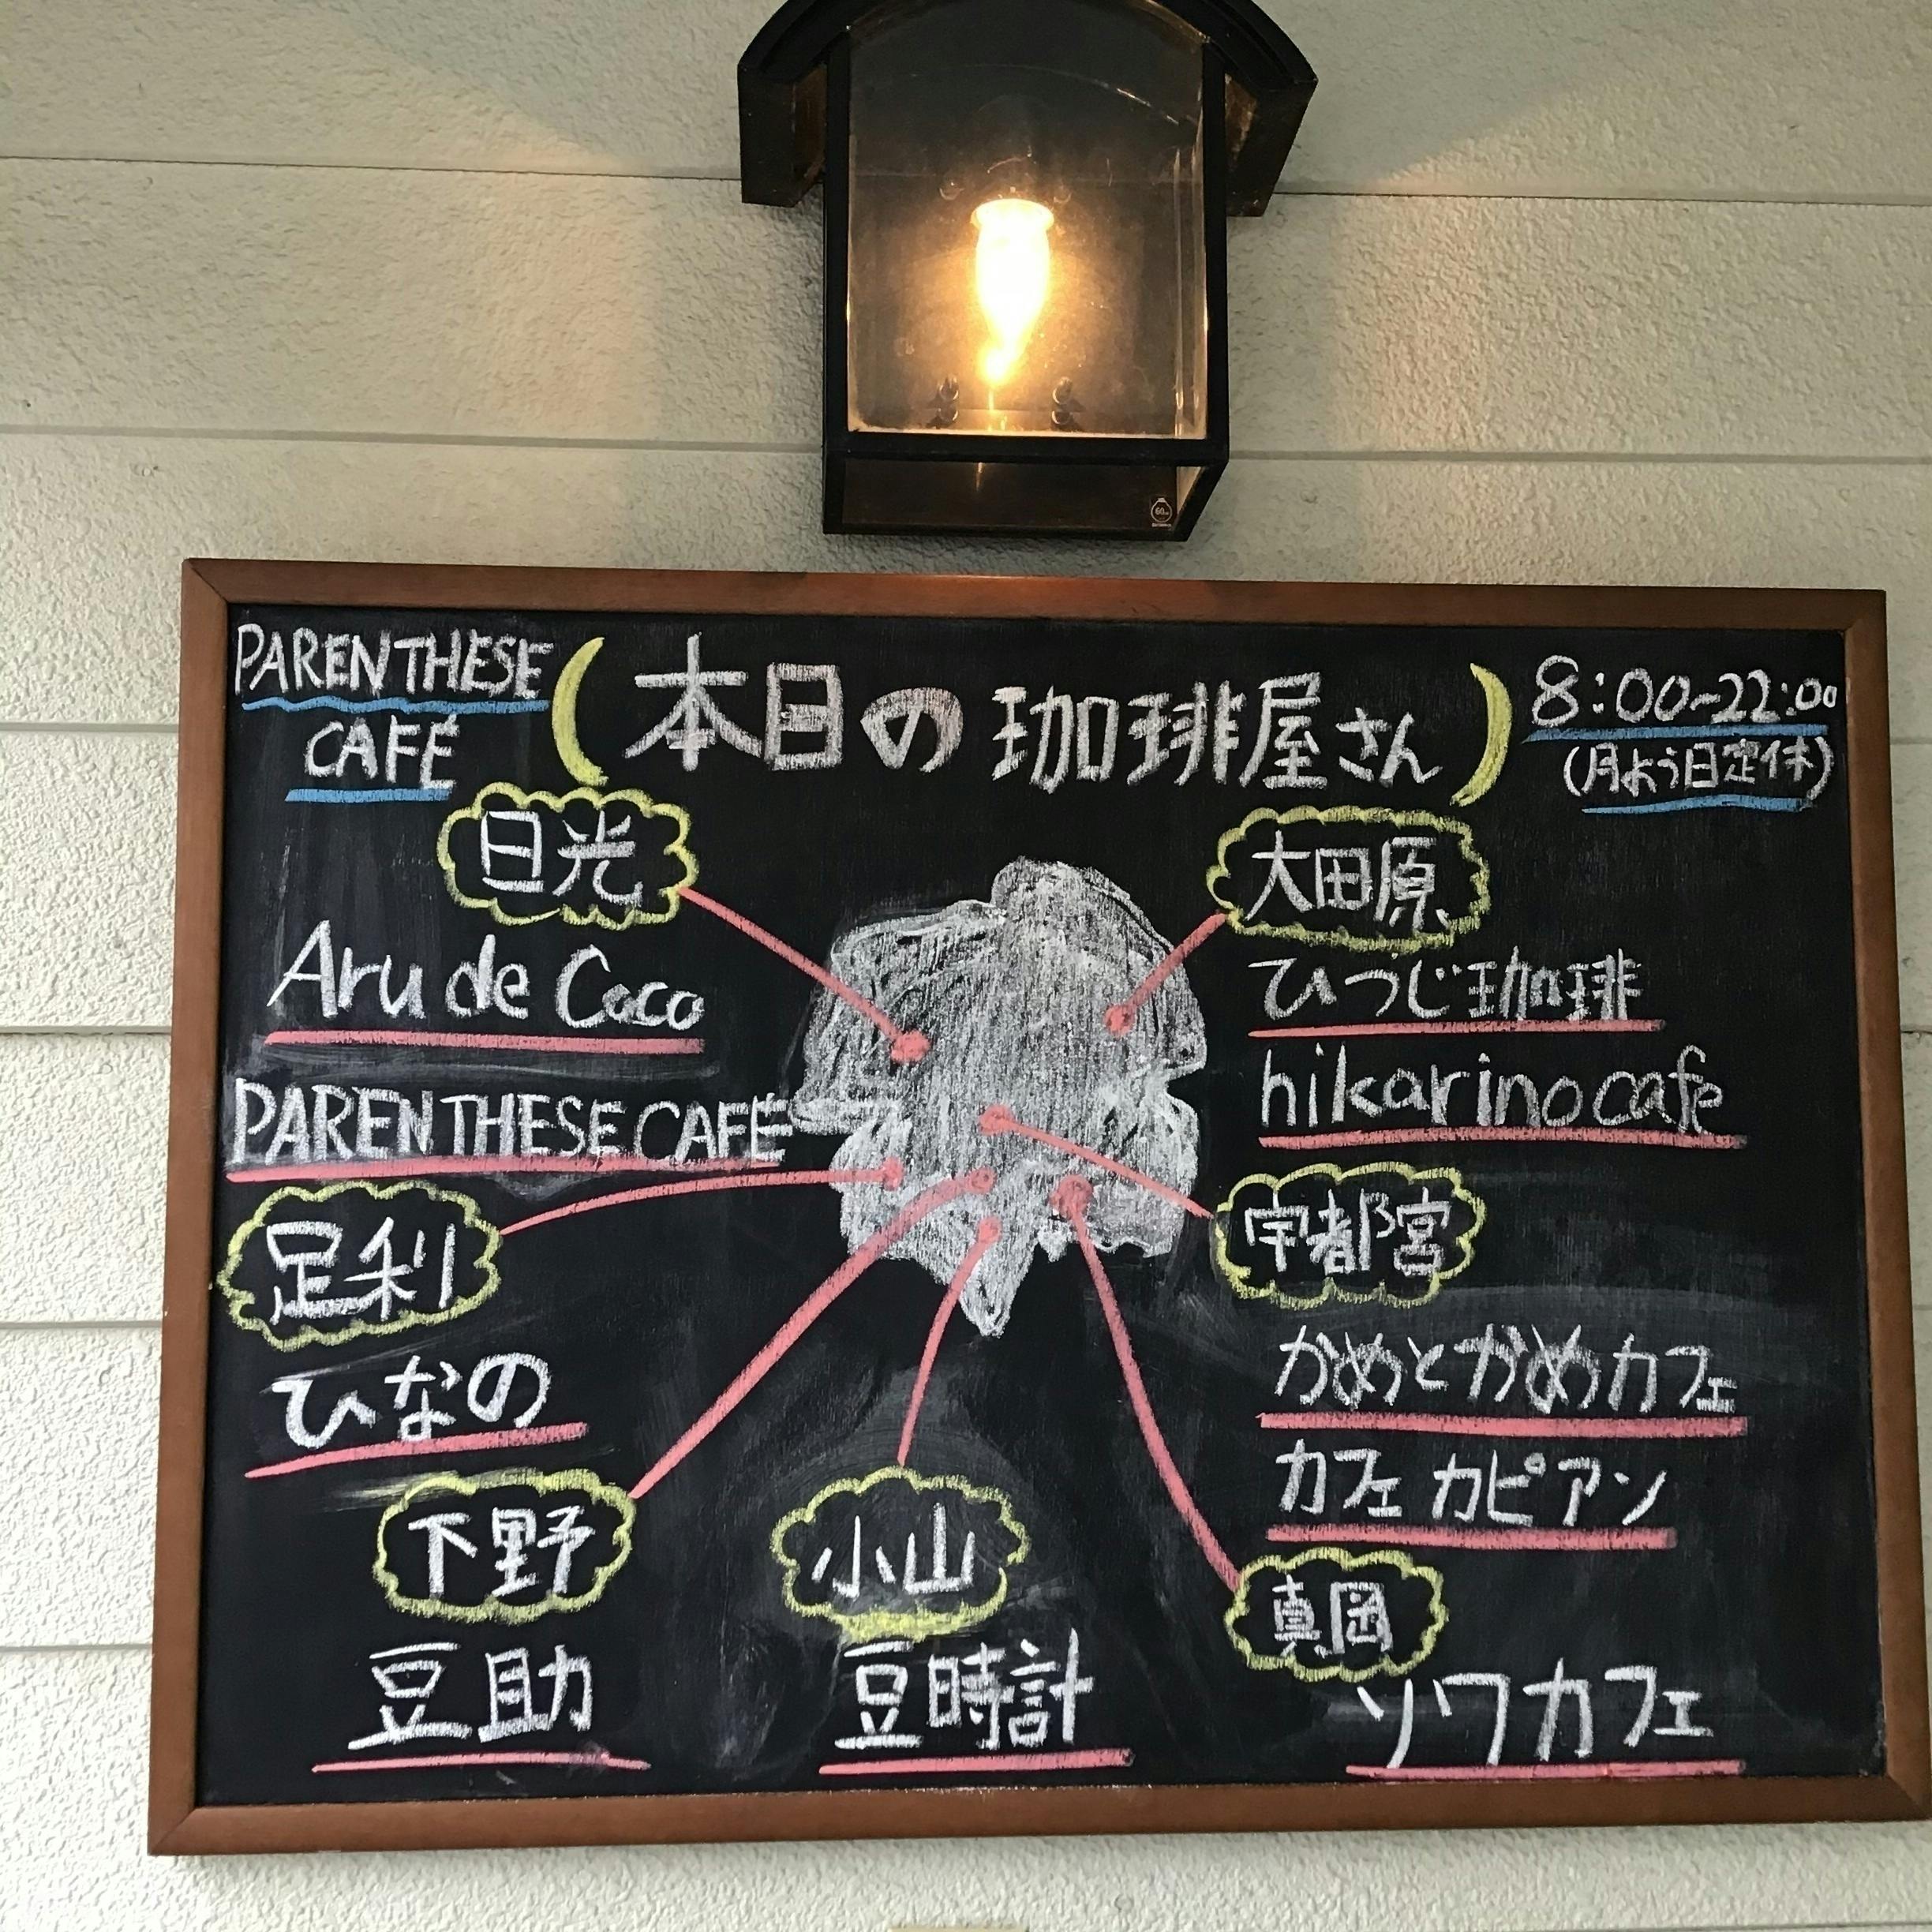 PARENTHESE
CAFÉ
(本日の珈琲屋さん)
8:00~22:00
(月よう日定休)
日光
Aru de Coco
PARENTHESE CAFÉ
足利
ひなの
下野
豆助
小山
豆時計
大田原
ひつじ珈琲
hikarino cafe
宇都宮
かめとかめカフェ
カフェ カピアン
真岡
ソワカフェ